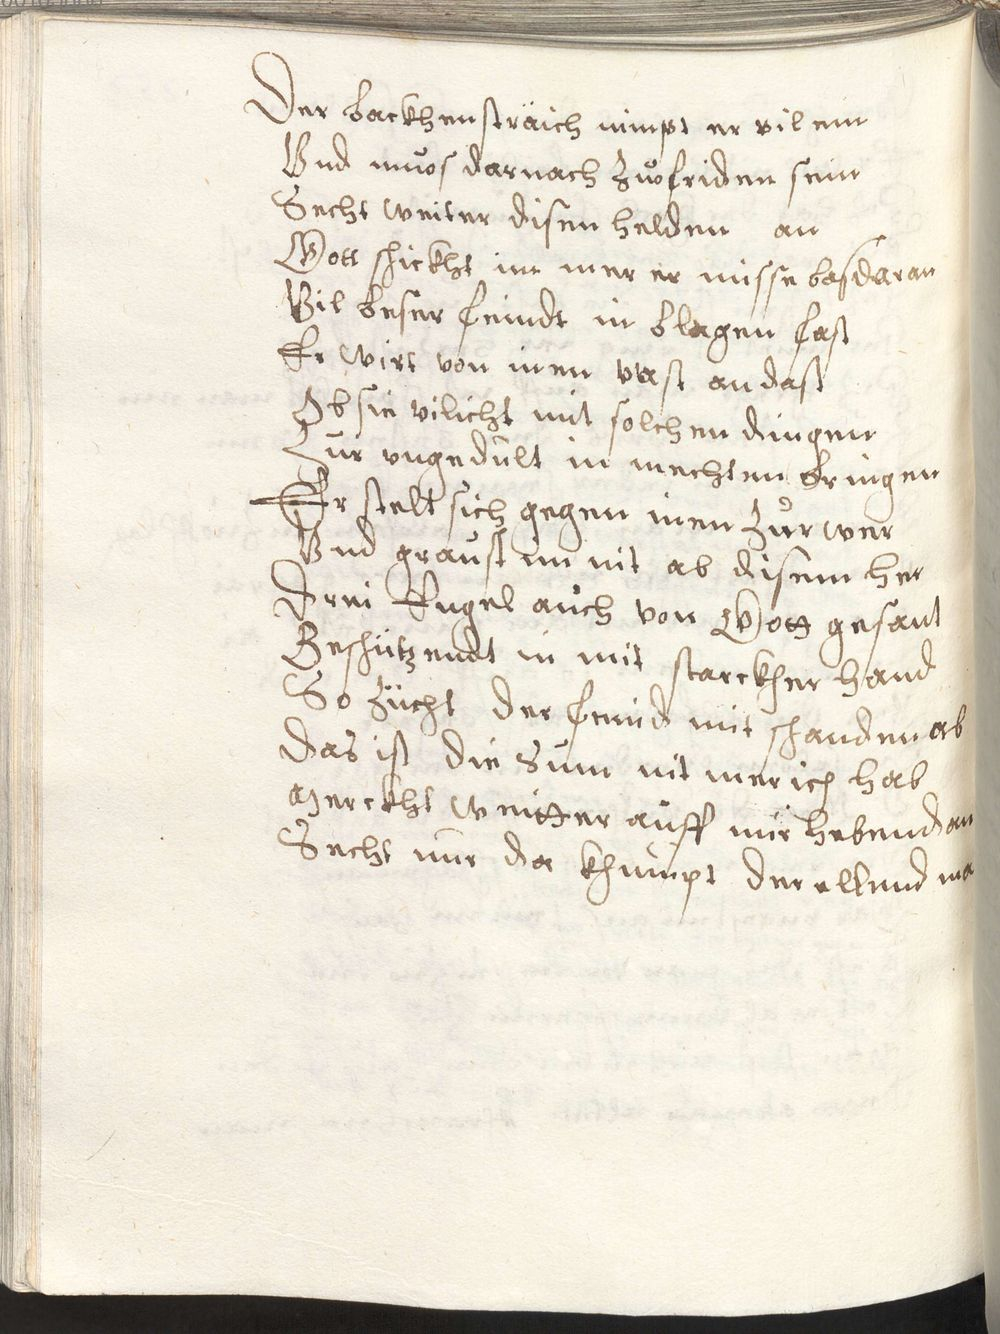 Der backhensträich nimpt er vil ein
Vnd muos darnach zuo friden sein
Secht weiter disen helden an
Gott schickht im mer er miesse bas daran
Vil beser feindt in blagen fast
Er wirt von inen vast an dast
Ob sie vilicht mit solchen dingen
Zur vngedult in mechten bringen
Er stelt sich gegen inen zur wer
Vnd graust im nit ab disem her
Drei Engel auch von Gott gesant
Beschützendt in mit starckher hand
So zücht der feind mit schanden ab
Das ist die Sum nit mer ich hab
Merckht weitter auff mir hebend an
Secht nur da khumpt der ellend ma